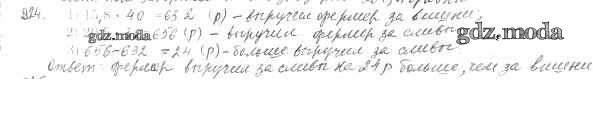 924. 1) 15,8 · 40 = 632 (р) – выручил фермер за вишни;
2) 656 (р) – выручил фермер за сливы
gdz.moda
gdz.moda
3) 656-632 = 24 (р) – больше выручил за сливы
Ответ: фермер выручил за сливы на 24 р больше, чем за вишни